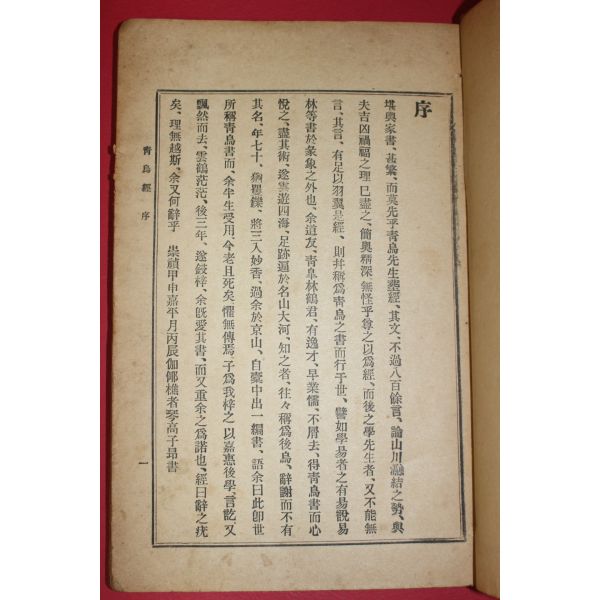 序
堪輿家書、甚繁、而莫先乎青烏先生塟經、其文、不過八百餘言、論山川融結之勢、與
夫吉凶禍福之理、已盡之、簡奧精深、無怪乎尊之以爲經、而後之學先生者、又不能無
言、其言、有足以羽翼是經、則幷稱爲靑烏之書而行于世、譬如學易者之有易說易
林等書於彖象之外也、余道友、靑皐林鶴君、有逸才、早業儒、不屑去、得靑烏書而心
悅之、盡其術、遂雲遊四海、足跡遍於名山大河、知之者、往々稱爲後烏、辭謝而不有
其名、年七十、猶矍鑠、將三入妙香、過余於京山、自槖中出一編書、語余曰此卽世
所稱靑烏書而、余半生受用今老且死矣、懼無傳焉、子爲我梓之、以嘉惠後學、言訖又
飄然而去、雲鶴茫茫、後三年、遂鋟梓、余旣愛其書、而又重余之爲諾也、經曰辭之疣
矣、理無越斯、余又何辭乎　崇禎甲申嘉平月丙辰伽倻樵者琴高子昻書
靑烏經　序
一